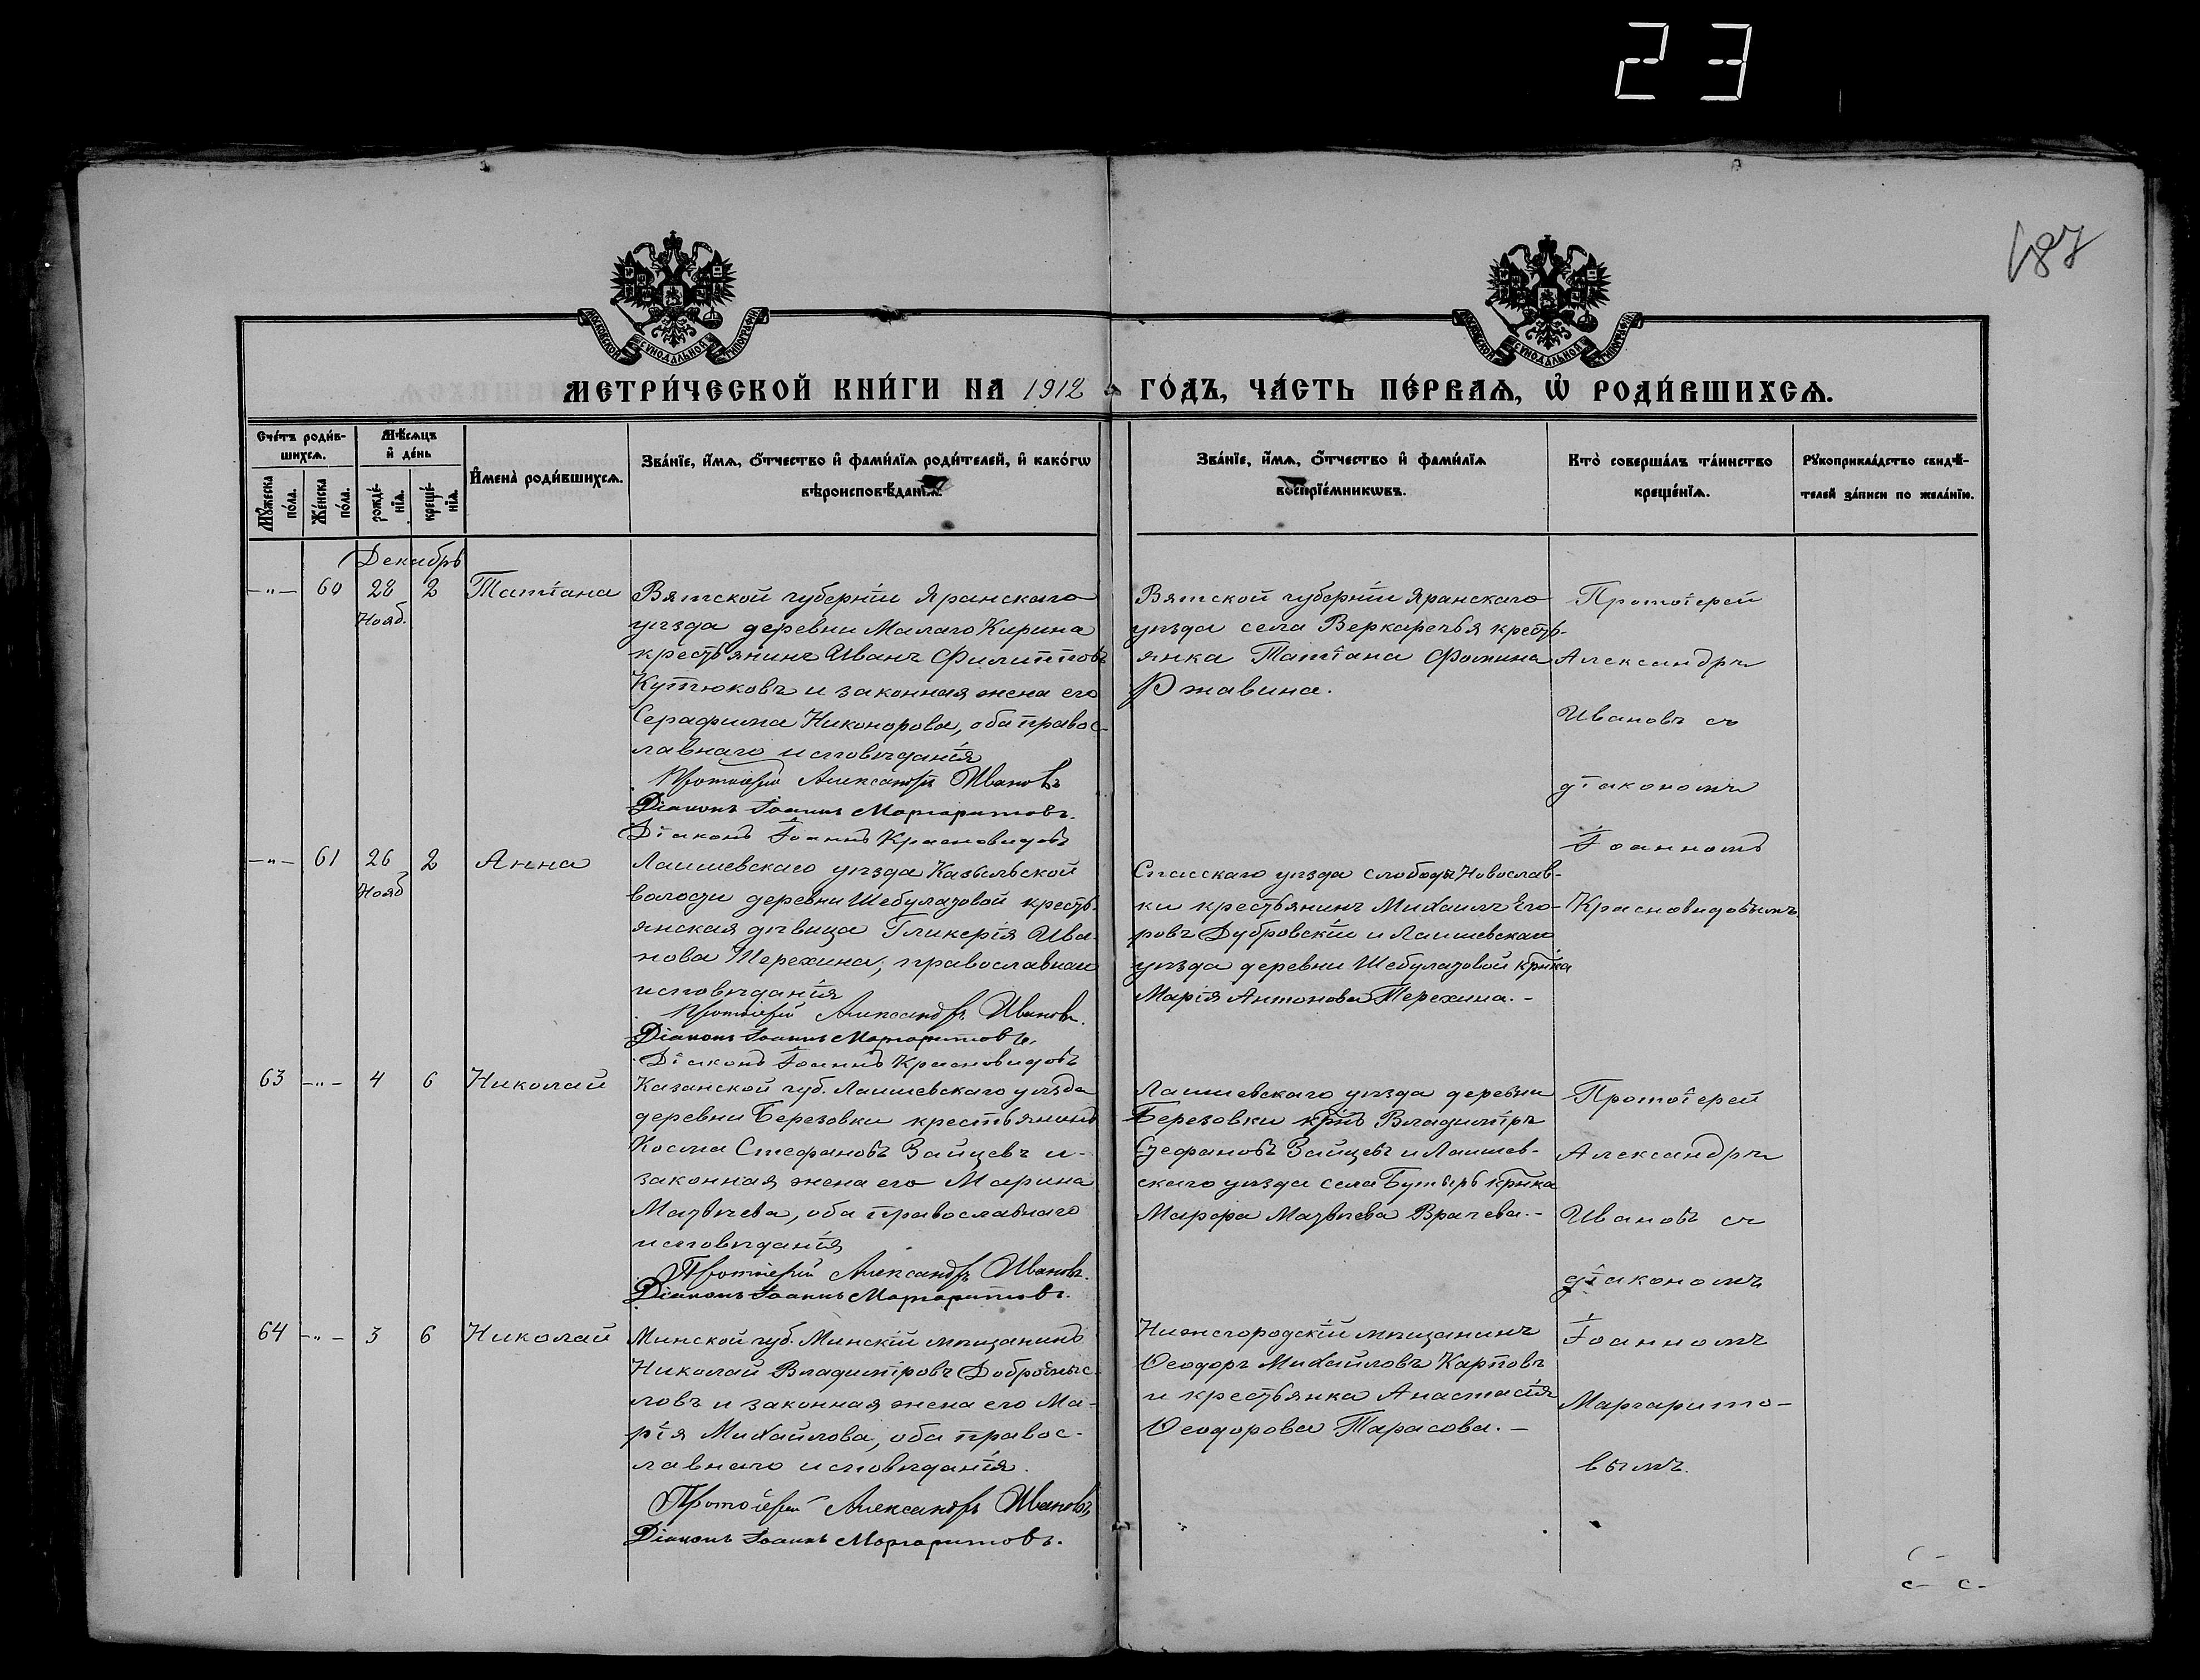 23
187
МОСКОВСКОЙ СѴНОДАЛЬНОЙ ТИПОГРАФІИ
МОСКОВСКОЙ СѴНОДАЛЬНОЙ ТИПОГРАФІИ
МЕТРИ́ЧЕСКОЙ КНИ́ГИ НА 1912 ГО́ДЪ, ЧА́СТЬ ПЕ́РВАѦ, Ѡ҆ РОДИ́ВШИХСѦ.
Сче́тъ роди́в-
шихсѧ.
Мꙋ́жеска по́ла.
Же́нска по́ла.
Мѣ́сѧцъ
и҆ де́нь
рожде́-
нїѧ.
креще́-
нїѧ.
И҆мена̀ роди́вшихсѧ.
Зва́нїе, и҆́мѧ, ѻ҆́тчество и҆ фами́лїѧ роди́телей, и҆ како́гѡ
вѣроисповѣ́данїѧ.
Зва́нїе, и҆́мѧ, ѻ҆́тчество и҆ фами́лїѧ
воспрїе́мникѡвъ.
Кто̀ соверша́лъ та́инство
креще́нїѧ.
Рꙋкоприкла́дство свидѣ́-
телей за́писи по жела́нїю.
Декабрь
-"- 60 28 2 Татіана
Нояб.
Вятской губерніи Яранскаго
уѣзда деревни Малаго Кирина
крестьянинъ Иванъ Филипповъ
Кутюковъ и законная жена его
Серафима Никонорова, оба правос-
лавнаго исповѣданія
Протоіерей Александръ Ивановъ
Діаконъ Іоаннъ Маргаритовъ.
Діаконъ Іоаннъ Красновидовъ
Вятской губерніи Яранскаго
уѣзда села Верхаречья кресть-
янка Татіана Фомина
Ржавина.
Протоіерей
Александръ
Ивановъ съ
діакономъ
Іоанномъ
Красновидовымъ
-"- 61 26 2 Анна
Нояб
Лаишевскаго уѣзда Казыльской
волости деревни Шебулатовой кресть-
янская дѣвица Гликерія Ива-
нова Терехина, православнаго
исповѣданія
Протоіерей Александръ Ивановъ.
Діаконъ Іоаннъ Маргаритовъ.
Діаконъ Іоаннъ Красновидовъ
Спасскаго уѣзда слободы Новослав-
ки крестьянинъ Михаилъ Его-
ровъ Дубровскій и Лаишевскаго
уѣзда деревни Шебулатовой кр-нка
Марія Антонова Терехина. -
63 -"- 4 6 Николай
Казанской губ. Лаишевскаго уѣзда
деревни Березовки крестьянинъ
Косма Стефановъ Зайцевъ и
законная жена его Марина
Матвѣева, оба православнаго
исповѣданія
Протоіерей Александръ Ивановъ.
Діаконъ Іоаннъ Маргаритовъ.
Лаишевскаго уѣзда деревни
Березовки кр-нъ Владиміръ
Стефановъ Зайцевъ и Лаишев-
скаго уѣзда села Бутырь кр-нка
Марфа Матвѣева Врачева. -
Протоіерей
Александръ
Ивановъ съ
діакономъ
Іоанномъ
Маргарито-
вымъ.
64 -"- 3 6 Николай
Минской губ. Минскій мѣщанинъ
Николай Владиміровъ Добромыс-
ловъ и законная жена его Ма-
рія Михайлова, оба правос-
лавнаго исповѣданія.
Протоіерей Александръ Ивановъ,
Діаконъ Іоаннъ Маргаритовъ.
Нижегородскій мѣщанинъ
Ѳеодоръ Михайловъ Карповъ
и крестьянка Анастасія
Ѳеодорова Тарасова. -